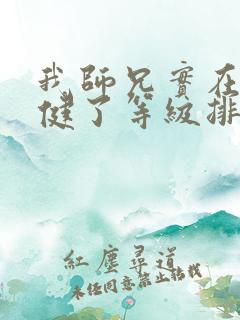 我師兄實在
健了等級排
紅塵尋道
未经同意禁止转载